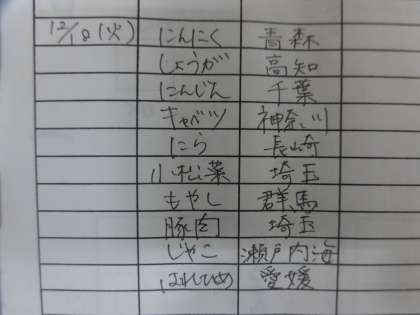 12/18(火) にんにく 青森
しょうが 高知
にんじん 千葉
キャベツ 神奈川
にら 長崎
小松菜 埼玉
もやし 群馬
豚肉 埼玉
じゃこ 瀬戸内海
はれひめ 愛媛